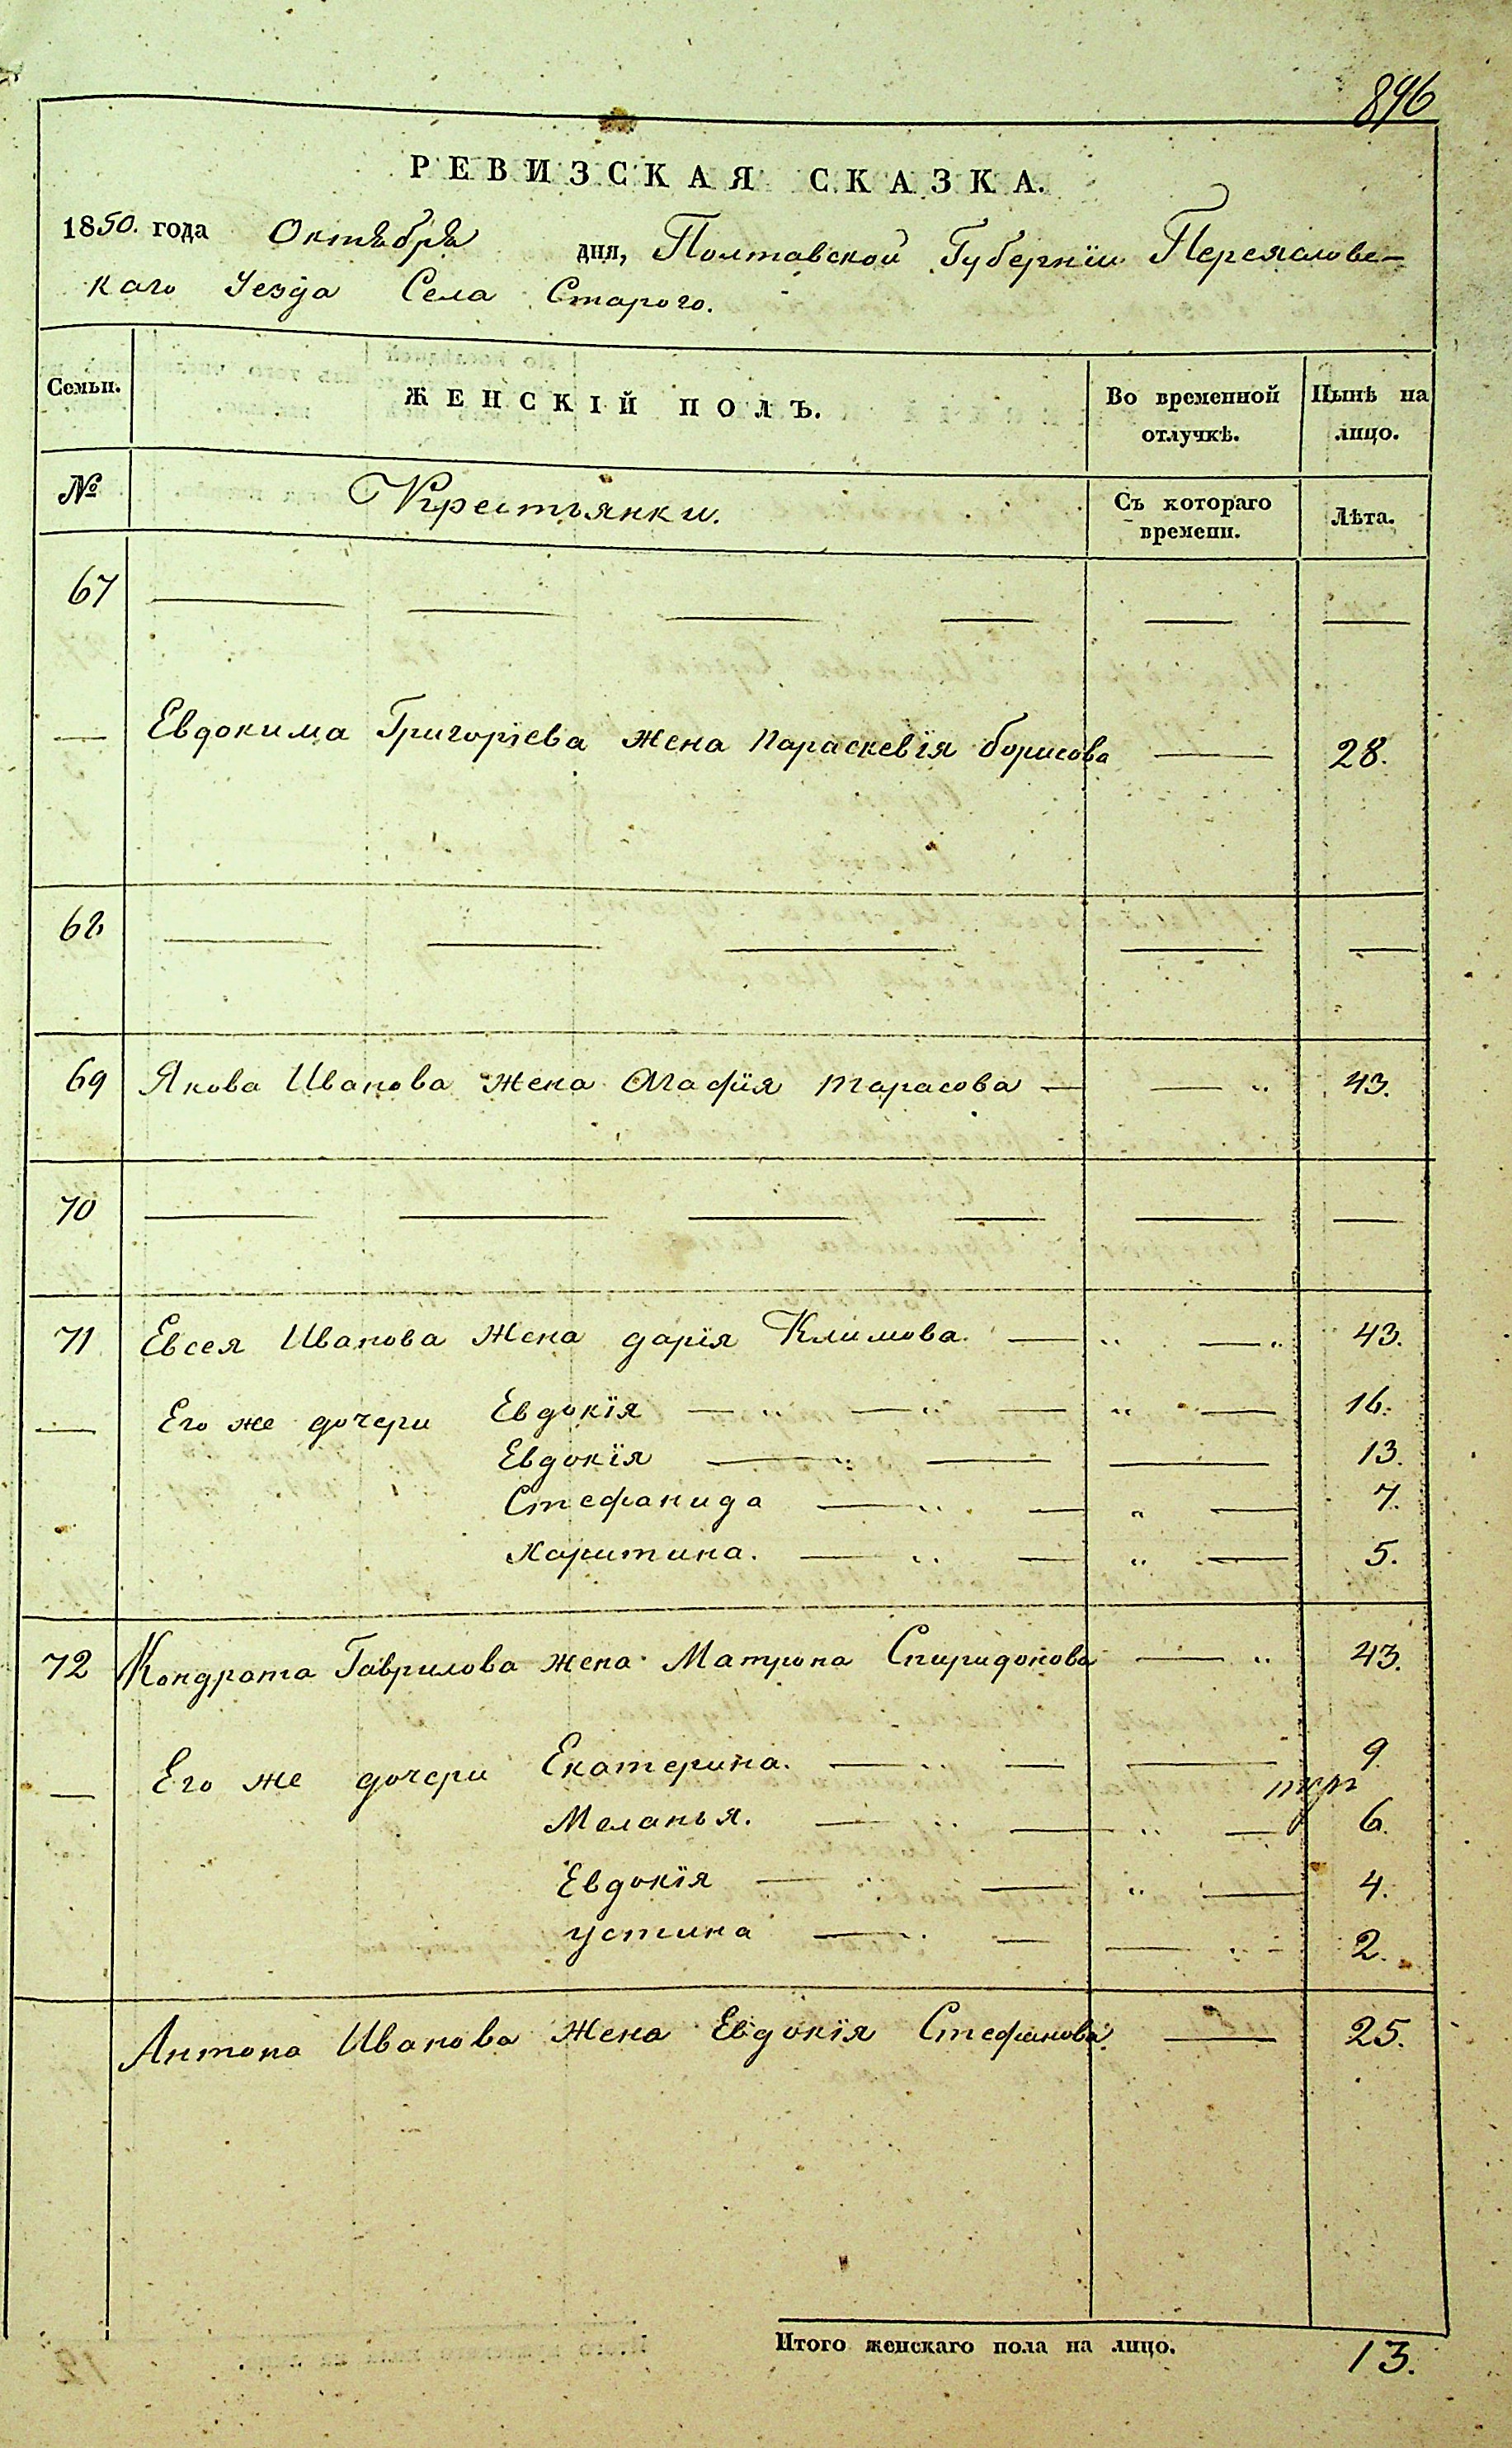 896
РЕВИЗСКАЯ СКАЗКА.
1850. года Октября дня, Полтавской Губернїи Переяславс-
каго Уезда Села Старого.
Семьи. ЖЕНСКІЙ ПОЛЪ. Во временной отлучкѣ. Нынѣ на лицо.
№ Крестьянки. Съ котораго времени. Лѣта.
67
— Евдокима Григорїева жена Параскевїя Борисова — 28.
68
69 Якова Иванова жена Агафїя Тарасова — — " 43.
70
71 Евсея Иванова жена дарїя Климова. — " — " 43.
— Его же дочери Евдокїя — " — " — " — 16.
Евдокїя — " — — 13.
Стефанида — " — " — 7.
Харитина. — " — " — 5.
72 Кондрата Гаврилова жена Матрона Спиридонова — " 43.
— Его же дочери Екатерина. — " — — 9.
Меланья. — " — " — 6.
Евдокїя — " — " — 4.
Устина — " — — " - 2.
Антона Иванова жена Евдокїя Стефанова. — 25.
Итого женскаго пола на лицо. 13.